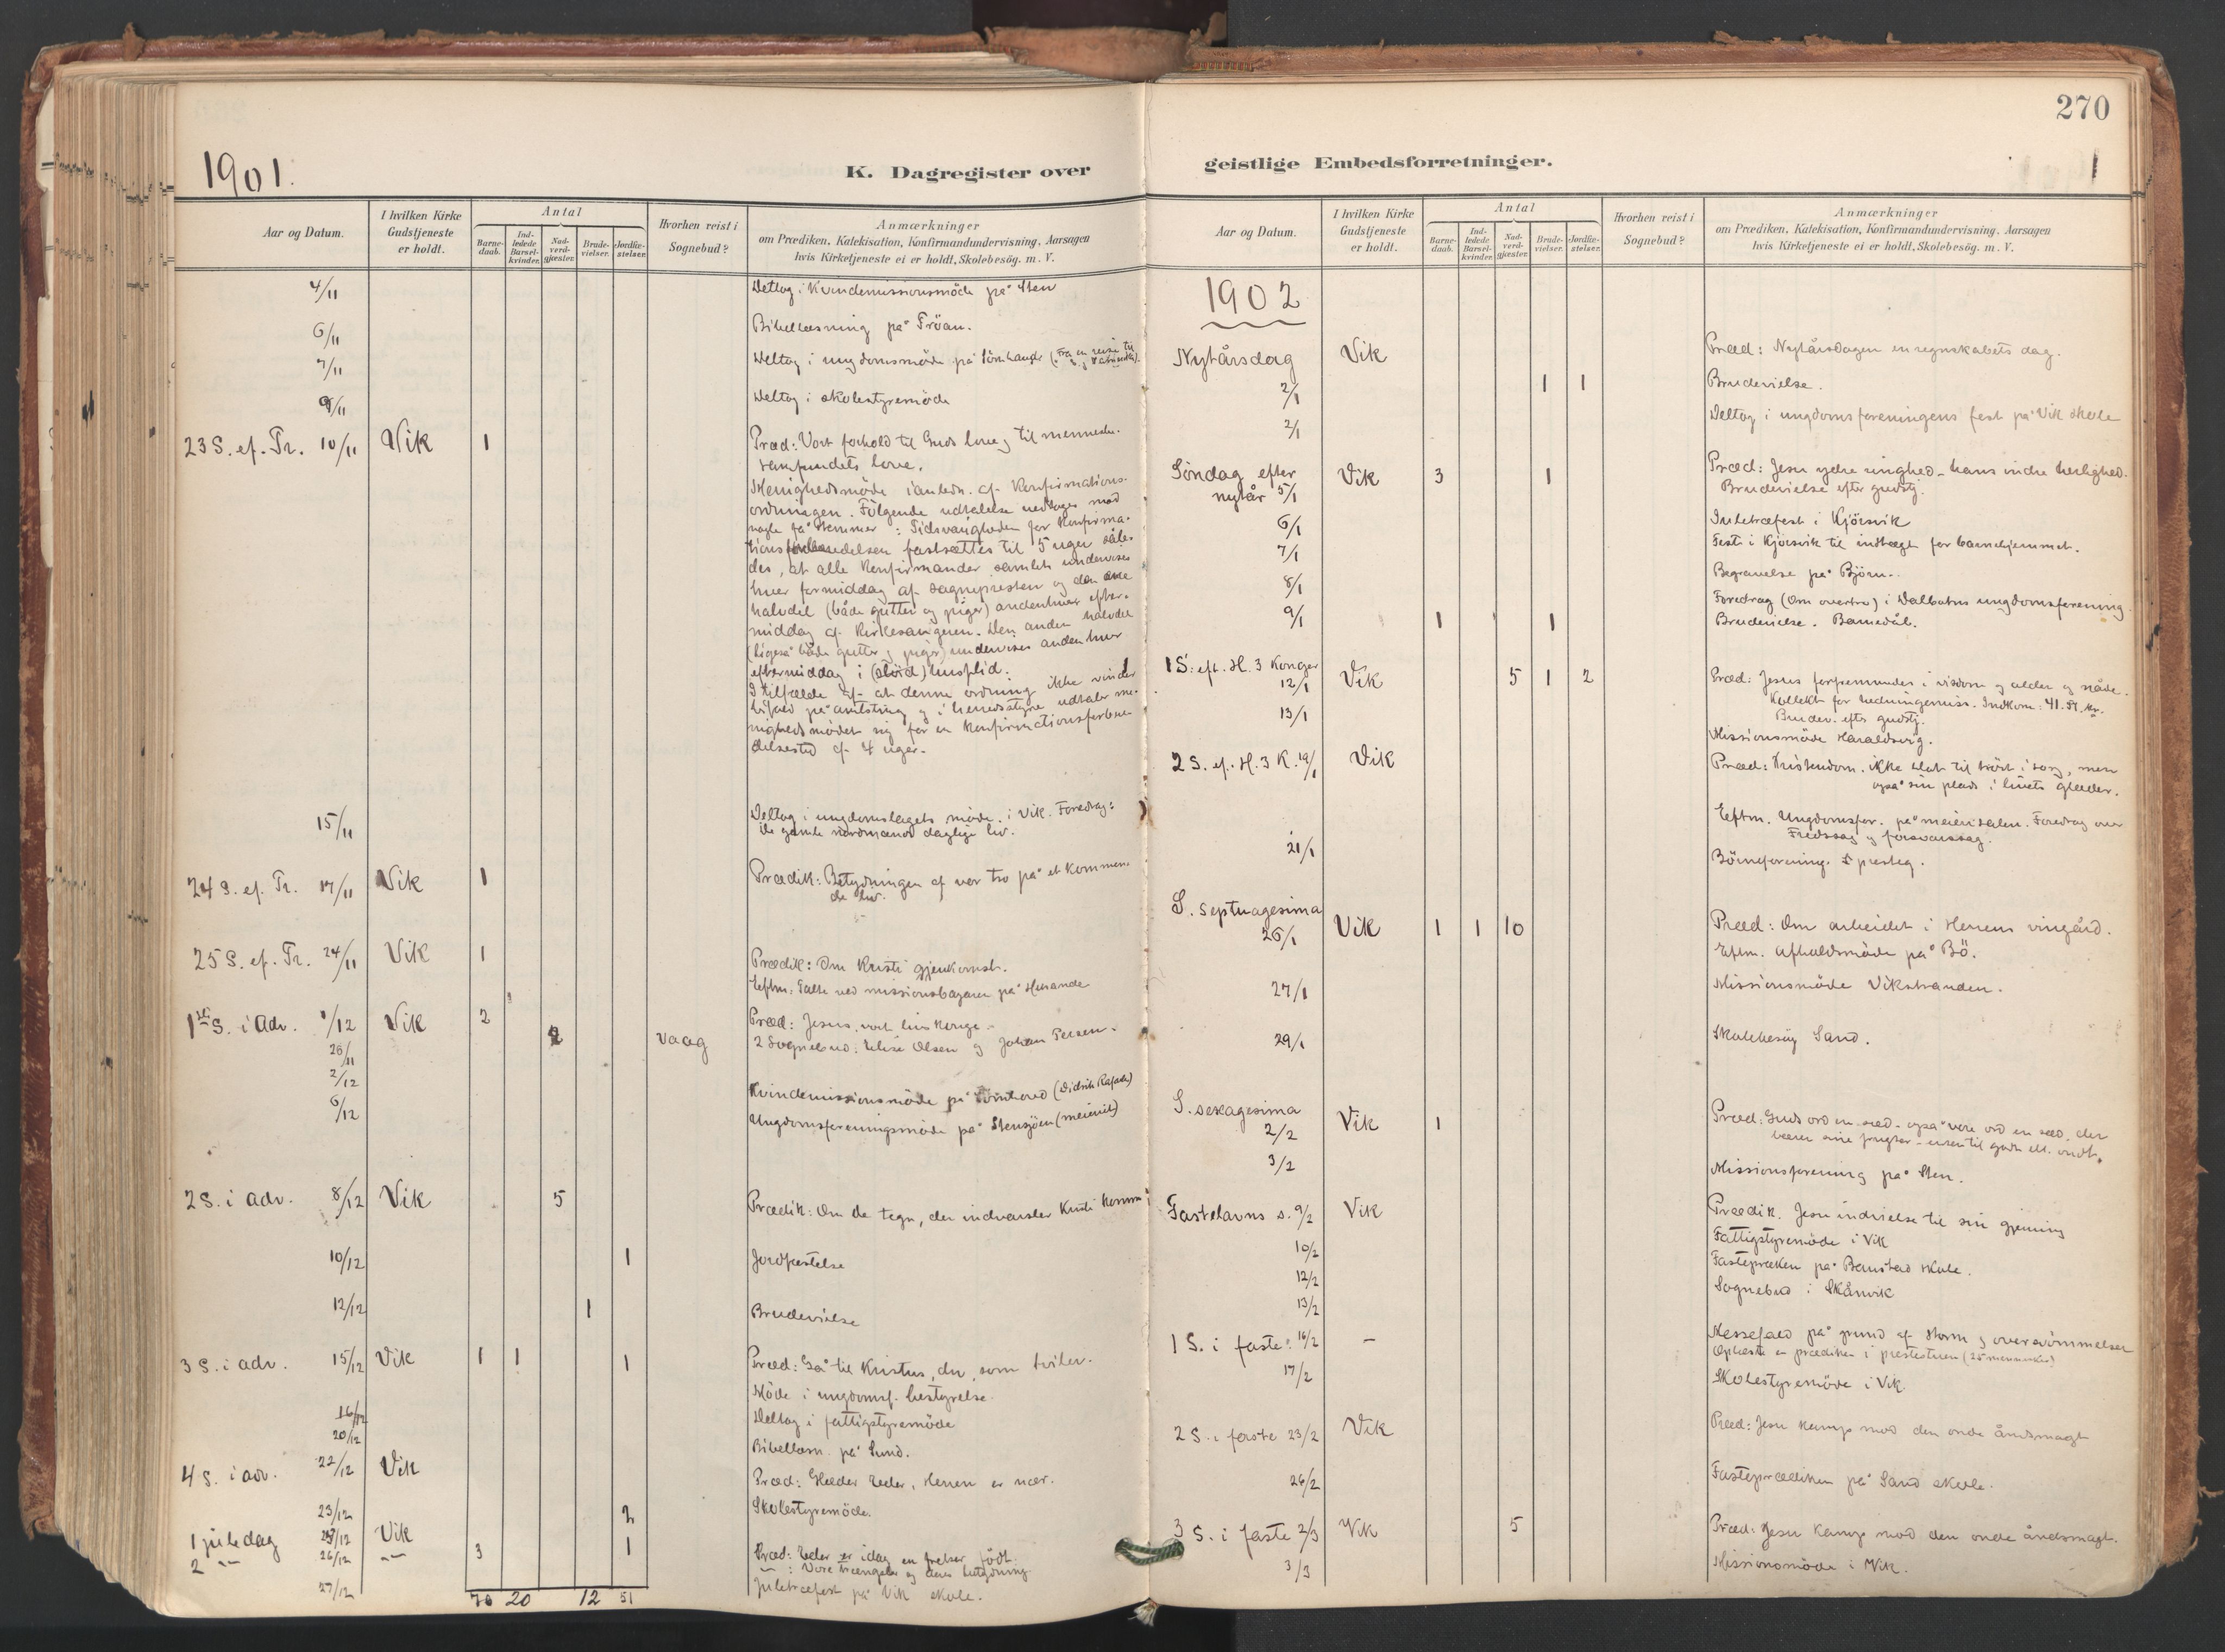 1901.
K. Dagregister over
Aar og Datum.
I hvilken Kirke
Gudstjeneste
er holdt.
Antal
Barne-
daab.
Ind-
ledede
Barsel-
kvinder.
Nad-
verd-
gjæster.
Brude-
vielser.
Jordfæ-
stelser.
Hvorhen reist i
Sognebud?
Anmærkninger
om Prædiken, Katekisation, Konfirmandundervisning, Aarsagen
hvis Kirketjeneste ei er holdt, Skolebesög. m. V.
4/11 Deltog i Kvindemissionsmöde på Sten
6/11 Bibellæsning på Fröan.
7/11 Deltog i ungdomsmöde på
9/11 Deltog i skolestyremöde
23 S. ef. Tr. 10/11 Vik 1 Præd: Vort forhold til Guds love og til menneske-
samfundets love.
Menighedsmöde i anledn. af Konfirmations-
ordningen. Fölgende udtalelse vedtoges mod
nogle få stemmer: Tidsvarigheden for Konfirma-
tionsforberedelsen fastsættes til 5 uger såle-
des, at alle Konfirmander samlet undervises
hver formiddag af sognepresten og den ene
halvdel (både gutter og piger) andenhver efter-
middag af Kirkesangeren. Den anden halvdel
(ligeså både gutter og piger) undervises andenhver
eftermiddag i (slöid) husflid.
I tilfælde af at denne ordning ikke vinder
bifald på amtsting og i herredsstyre udtaler me-
nighedsmödet sig for en Konfirmationsforbere-
delsestid af 4 uger.
15/11 Deltog i ungdomslagets möde i Vik. Foredrag:
De gamle nordmænds daglige liv.
24 S. ef. Tr. 17/11 Vik 1 Prædik: Betydningen af vor tro på et kommen-
de liv.
25 S. ef. Tr. 24/11 Vik 1 Prædik: Om Kristi gjenkomst.
Eftm: Talte ved missionsbazaren på
1ste S. i Adv. 1/12 Vik 2 Præd: Jesus, vort livs Konge.
28/11 2 Vaag 2 Sognebud: Elise Olsen og Johan
2/12 Kvindemissionsmöde på
6/12 Ungdomsforeningsmöde på Stensjöen (meieriet)
2 S. i adv. 8/12 Vik 5 Prædik: Om de tegn, der indvarsler Kristi Komme
10/12 1 Jordfæstelse
12/12 1 Brudevielse
3 S. i adv. 15/12 Vik 1 1 1 Præd: Gå til Kristus, du, som tviler.
Möde i ungdomsf. bestyrelse.
16/12 Deltog i fattigstyremöde
20/12 Bibellæsn. på Sund.
4 S. i adv. 22/12 Vik Præd: Glæder Eder, Herren er nær.
23/12 2 Skolestyremöde.
1 juledag 25/12 Vik 1 Præd: Eder er idag en frelser födt.
2 -"- 26/12 -"- 3 -"- : Vore trængsler og deres betydning
27/12 Juletræfest på Vik skole.
70 20 12 51
270
geistlige Embedsforretninger.
1
Aar og Datum.
I hvilken Kirke
Gudstjeneste
er holdt.
Antal
Barne-
daab.
Ind-
ledede
Barsel-
kvinder.
Nad-
verd-
gjæster.
Brude-
vielser.
Jordfæ-
stelser.
Hvorhen reist i
Sognebud?
Anmærkninger
om Prædiken, Katekisation, Konfirmandundervisning, Aarsagen
hvis Kirketjeneste ei er holdt, Skolebesög. m. V.
1902
Nytårsdag Vik Præd: Nytårsdagen en regnskabets dag.
2/1 1 1 Brudevielse.
2/1 Deltog i ungdomsforeningens fest på Vik skole
Söndag efter
nytår 5/1 Vik 3 1 Præd: Jesu ydre ringhed - hans indre herlighed.
Brudevielse efter gudstj.
6/1 Juletræfest i Kjörsvik
7/1 Fest i Kjörsvik til indtægt for barnehjemmet.
8/1 Begravelse på Björn.
Foredrag (Om overtro) i Dalbotns ungdomsforening.
9/1 1 1 Brudevielse. Barnedåb.
1 S. eft. H. 3 Konger
12/1 Vik 5 1 2 Præd: Jesus forfremmedes i visdom og alder og nåde.
Kollekt for hedningemiss. Indkom: 41.51 Kr.
Brudev. efter gudstj.
13/1 Missionsmöde Haraldsvig.
2 S. ef. H. 3 K. 19/1 Vik Præd: Kristendom. ikke blot til tröst i sorg, men
også sin plads i livets glæder.
Eftm. Ungdomsfor. på meierisalen. Foredrag over
Fredssag og forsvarssag.
21/1 Börneforening. presteg.
S. Septuagesima
26/1 Vik 1 1 10 Præd: Om arbeidet i Herrens vingård.
Eftm. Afholdsmöde på Bö.
27/1 Missionsmöde Vikstranden.
29/1 Skolebesög Sand.
S. sexagesima
2/2 Vik 1 Præd: Guds ord en sæd - også vore ord en sæd, der
bærer sine frugter - enten til godt ell. ondt.
3/2 Missionsforening på Sten.
Fastelavns s. 9/2 Vik Prædik. Jesu indvielse til sin gjerning
10/2 Fattigstyremöde i Vik
12/2 Fastepræken på Benstad skole.
13/2 Sognebud i Skårvik
1 S. i faste 16/2 - Messefald på grund af storm og oversvömmelser
Oplæste en prædiken i prestestuen (25 mennesker)
17/2 Skolestyremöde i Vik.
2 S. i faste 23/2 Vik Præd: Jesu kamp mod den onde åndsmagt
26/2 Fasteprædiken på Sand skole.
3 S. i faste 2/3 Vik 5 Præd: Jesu kamp mod den onde åndsmagt.
3/3 Missionsmöde i Vik.